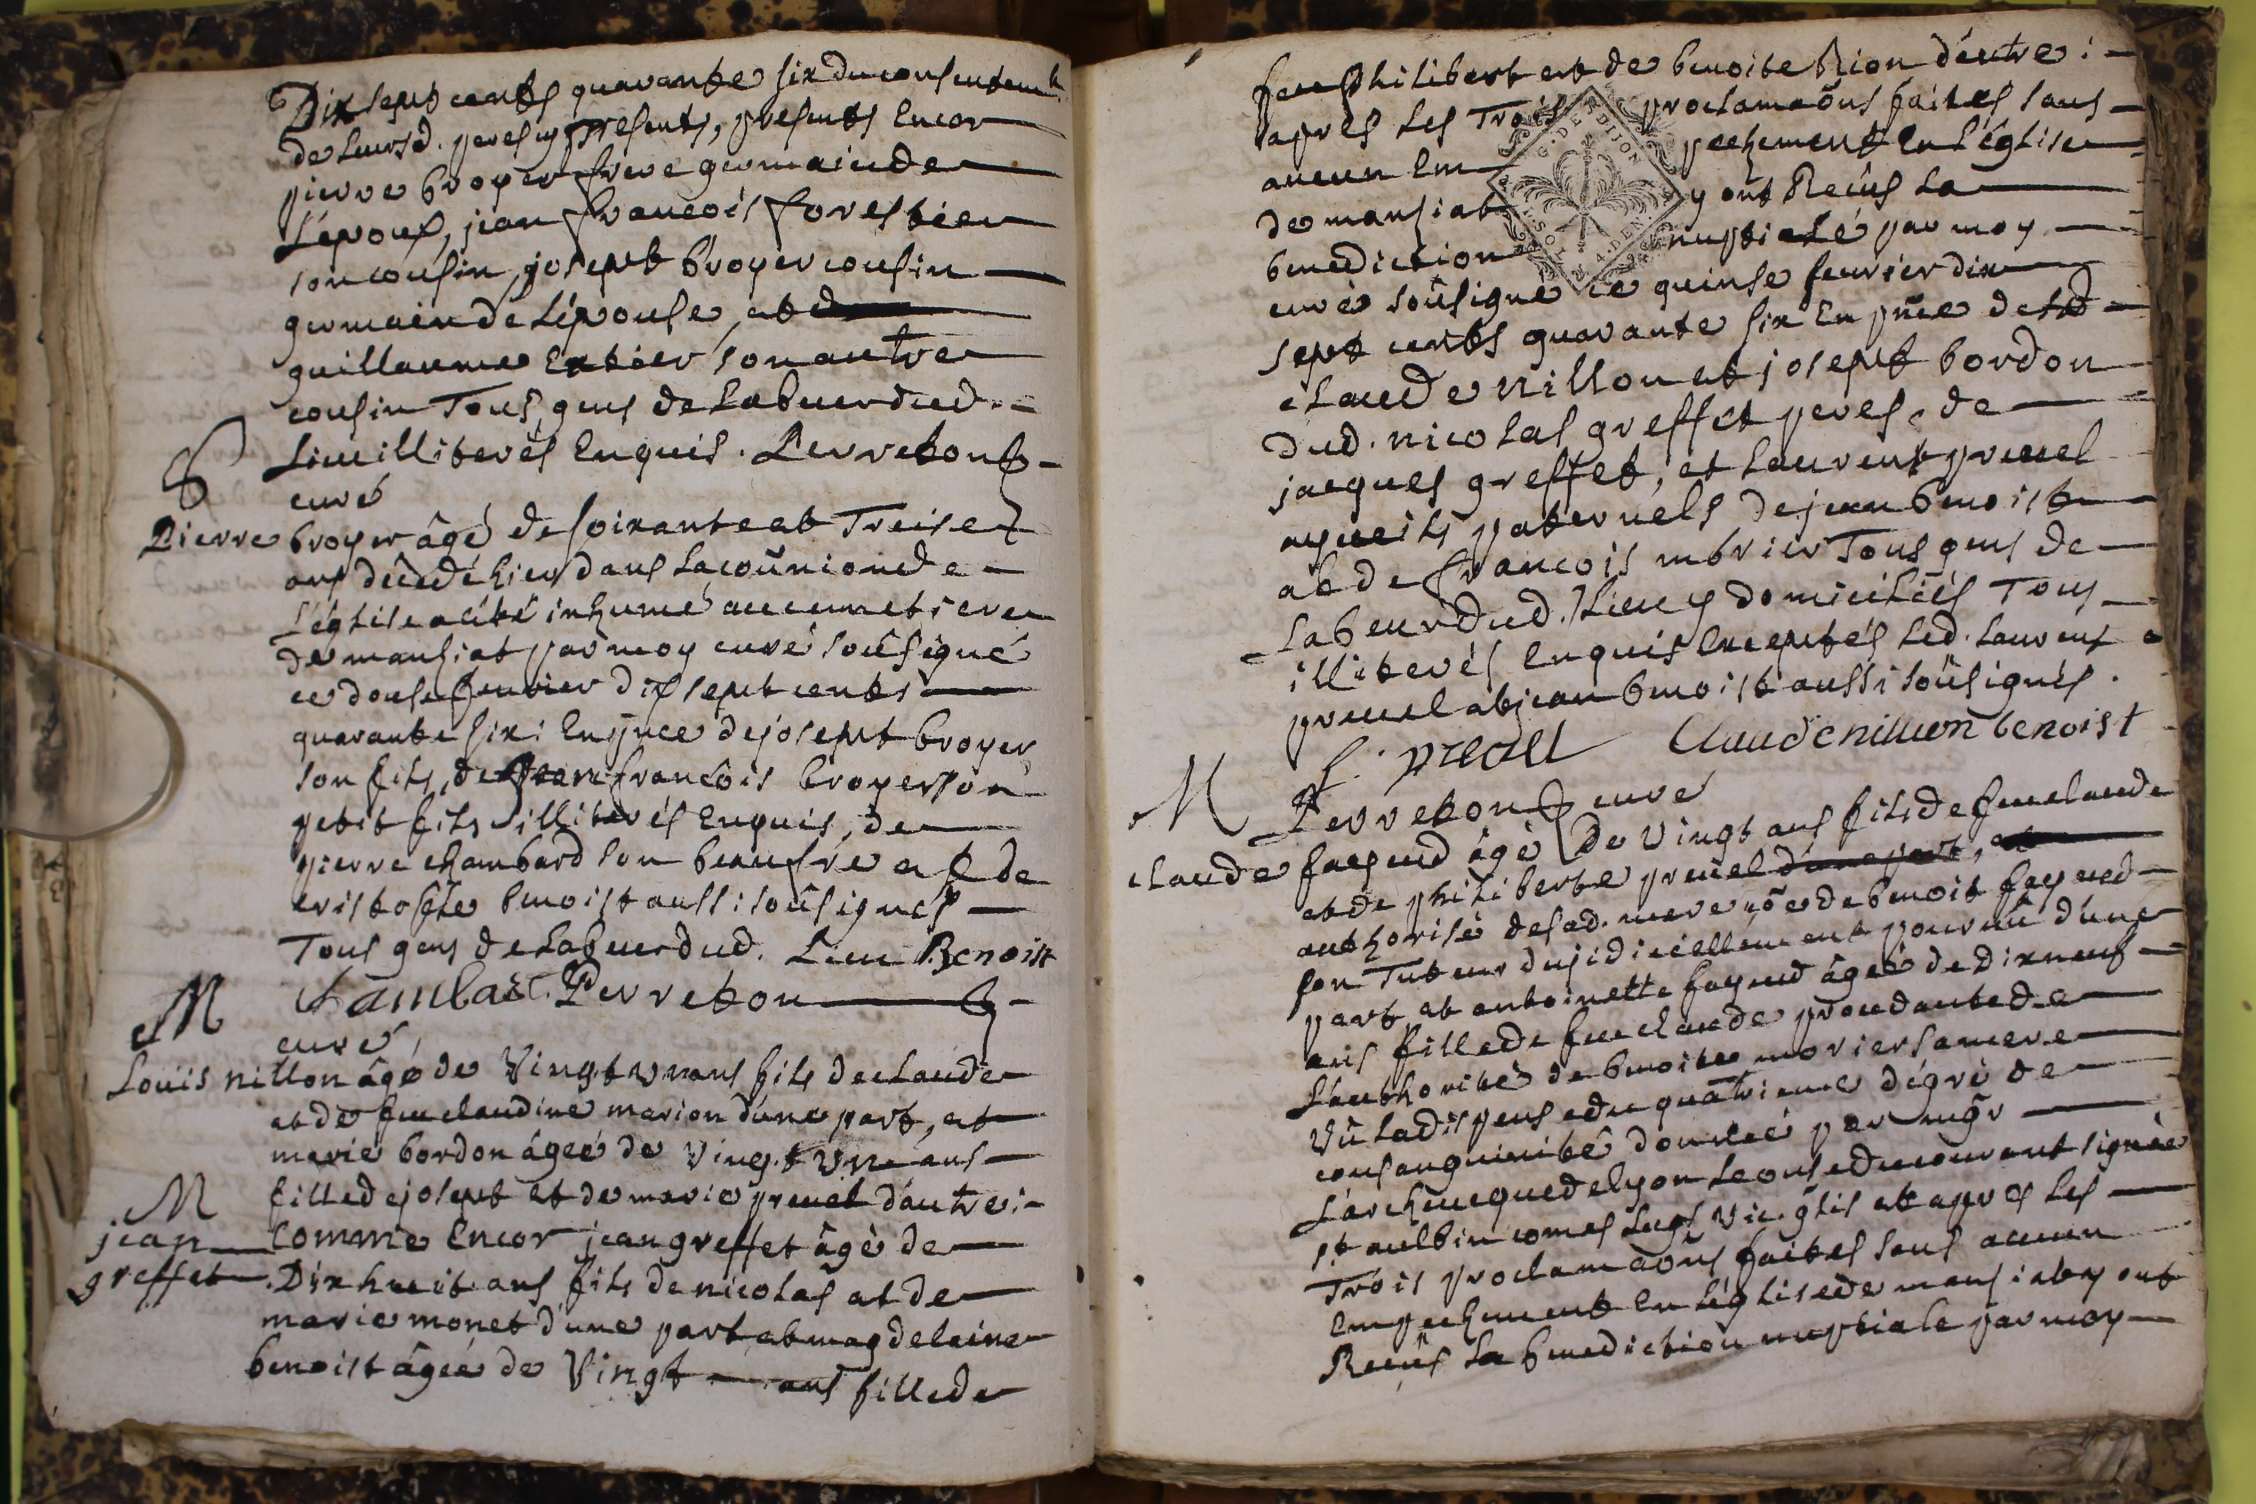 Dix sept cents quarante six du consentemt
de leursd. peres cy presents, presents encor
pierre broyer frere germain de
l'époux, jean francois forestier
son cousin, josept broyer cousin
germain de l'épouse, et d
guillaume son autre
cousin Tous gens de labeur dud.
S
lieu illiterés enquis. Perreton
curé
Pierre broyer âgé de soixante et Treise
ans décédé hier dans la cõunion de
l'église a été inhumé au cimetiere
de mansiat par moy curé soûsigné
ce douse feuvrier dix sept cents
quarante six : en pñce de josept broyer
son fils, de jean francois broyer son
petit fils illiterés enquis, de
pierre chambard son beaufre et de
cristofle benoist aussi soûsignés
Tous gens de labeur dud. Lieu Benoist
Chambar Perreton
curé
M
Louis nillon âgé de Vingt un ans fils de claude
et de feue claudine marion d'une part, et
marie bordon âgeé de Vingt Un ans
fille de josept et de marie preuel d'autre :
M
jean
greffet
Comme encor jean greffet âgé de
Dix huit ans fils de nicolas et de
marie monet d'une part et magdeleine
benoist âgeé de Vingt ans fille de
feu philibert et de benoite Rion d'autre :
apres les Trois proclamaõns faites sans
aucun em pechement en l'église
de mansiat y ont Receûs la
benediction nuptiale par moy
curé soûsigné ce quinse feuvrier dix
sept cents quarante six en pñce desd
claude nillon et josept bordon
dud. nicolas greffet peres, de
jacques greffet, et laurent preuel
ayeuls paternels de jean benoist
et de francois morier Tous gens de
labeur dud. lieu y domiciliés Tous
illiterés enquis exceptés led. laurent
preuel et jean benoist aussi soûsignés.
L. preuel Claude nillion benoist
G. DE DIJON
M
Perreton curé
claude fayeud âgé de Vingt ans fils de feu claude
et de philiberte preuel d'une part, et
authorisé de sad. mere cõe de benoit fayeud
son Tuteur dujidiciellement pourvû d'une
part et antoinette fayeud âgeé de Dix neuf
ans fille de feu claude procedante de
l'authorité de benoite morier sa mere
Vû la dispense du quatrieme dégré de
consanguinité donneé par mgr
l'archeueque de lyon le onse du courant signeé
st aulbin comes lugd vic. gñlis et apres les
Trois proclamaõns faites sans aucun
empechement en l'église de mansiat y ont
Receûs la benediction nuptiale par moy